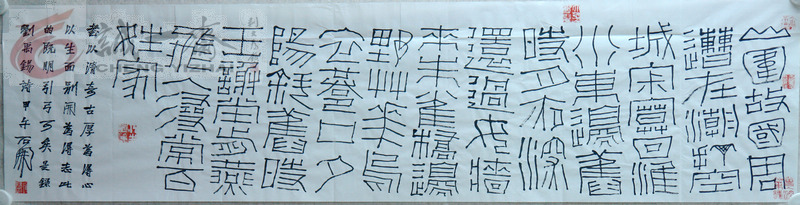 山圍故國周
遭在潮打空
城寂寞回淮
水東邊舊
時月夜深
還過女牆
來朱雀橋邊
野艸華烏
衣巷口夕
陽斜舊時
王謝堂前燕
飛入尋常百
姓家
書以奇古厚為得心
以生面別開為得志此
的既明引弓可矣是錄
劉禹錫詩甲午石開
CHENGYIZHAI